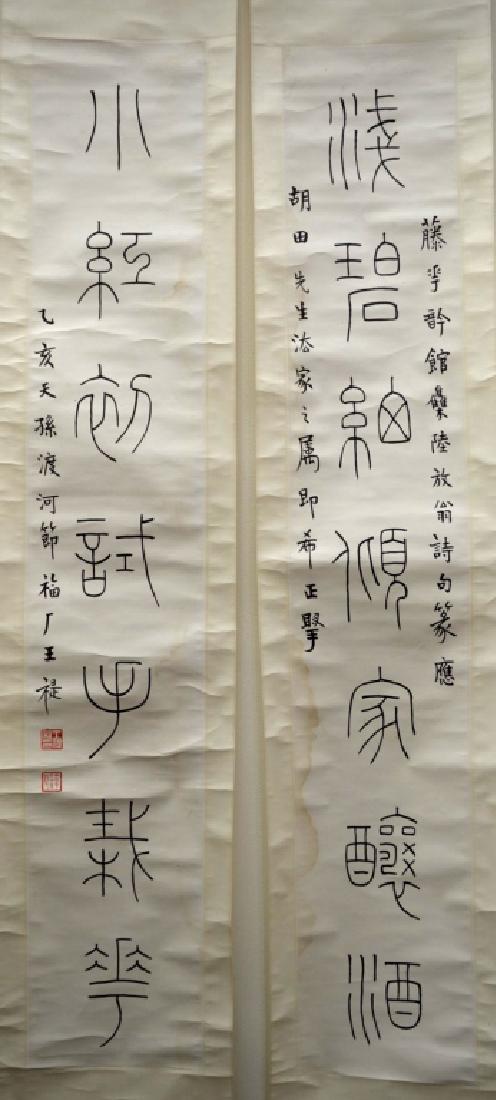 藤花䪩館雧陸放翁詩句篆應
淺碧細傾家釀酒
胡田先生法家之属即希正掔
小紅初試手栽花
乙亥天孫渡河節福厂王禔